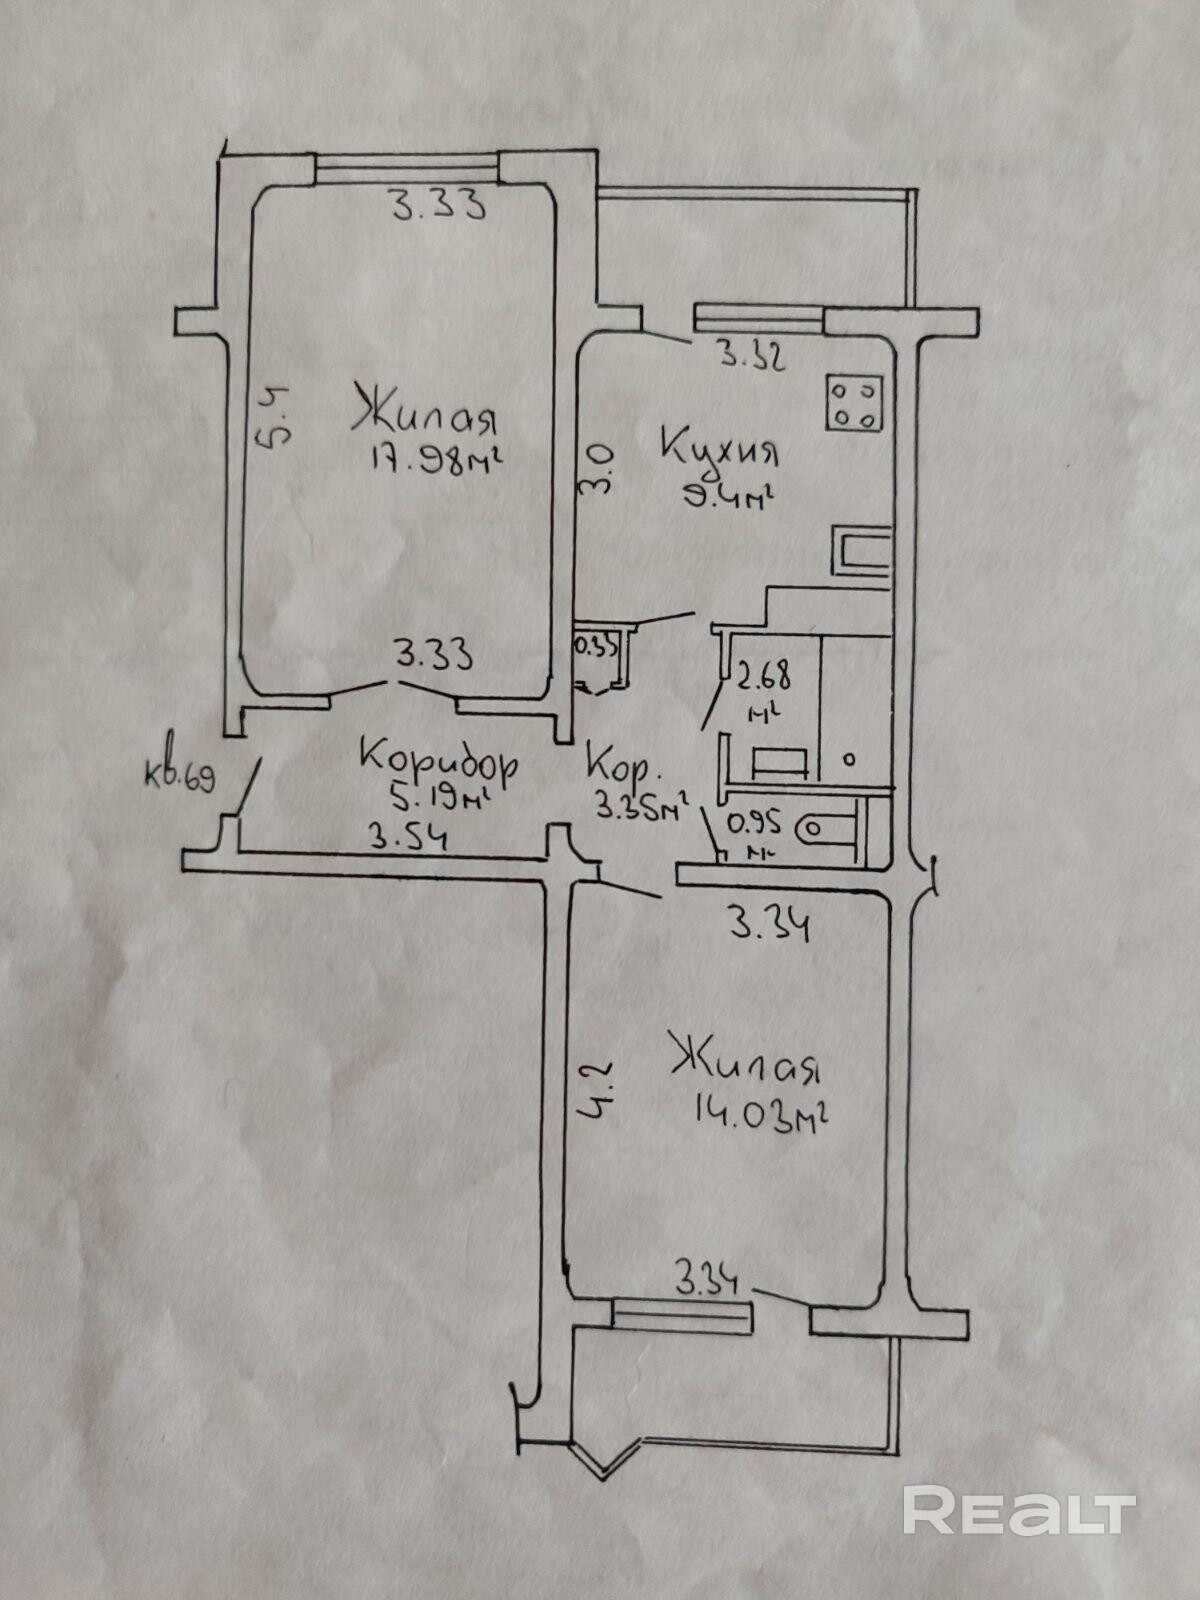 3.33
3.32
5.4
Жилая
17.98м²
3.0
Кухня
9.4м²
3.33
0.33
2.68
м²
кв.69
Коридор
5.19м²
3.54
Кор.
3.35м²
0.95
м²
3.34
4.2
Жилая
14.03м²
3.34
REALT